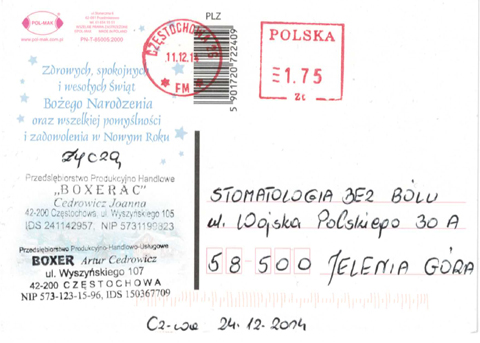 POL-MAK
www.pol-mak.com.pl
PN-T-85005:2000
PLZ
5 901720 722409
CZĘSTOCHOWA
11.12.14
FM
POLSKA
1.75
ZŁ
Zdrowych, spokojnych
i wesołych Świąt
Bożego Narodzenia
oraz wszelkiej pomyślności
i zadowolenia w Nowym Roku
życzą
Przedsiębiorstwo Produkcyjno Handlowe
"BOXERAC"
Cedrowicz Joanna
42-200 Częstochowa, ul. Wyszyńskiego 105
IDS 241142957, NIP 5731190323
Przedsiębiorstwo Produkcyjno-Handlowo-Usługowe
BOXER Artur Cedrowicz
ul. Wyszyńskiego 107
42-200 CZĘSTOCHOWA
NIP 573-123-15-96, IDS 150367709
STOMATOLOGIA BEZ BÓLU
ul. Wojska Polskiego 30 A
58-500 JELENIA GÓRA
Cz-wa 24.12.2014